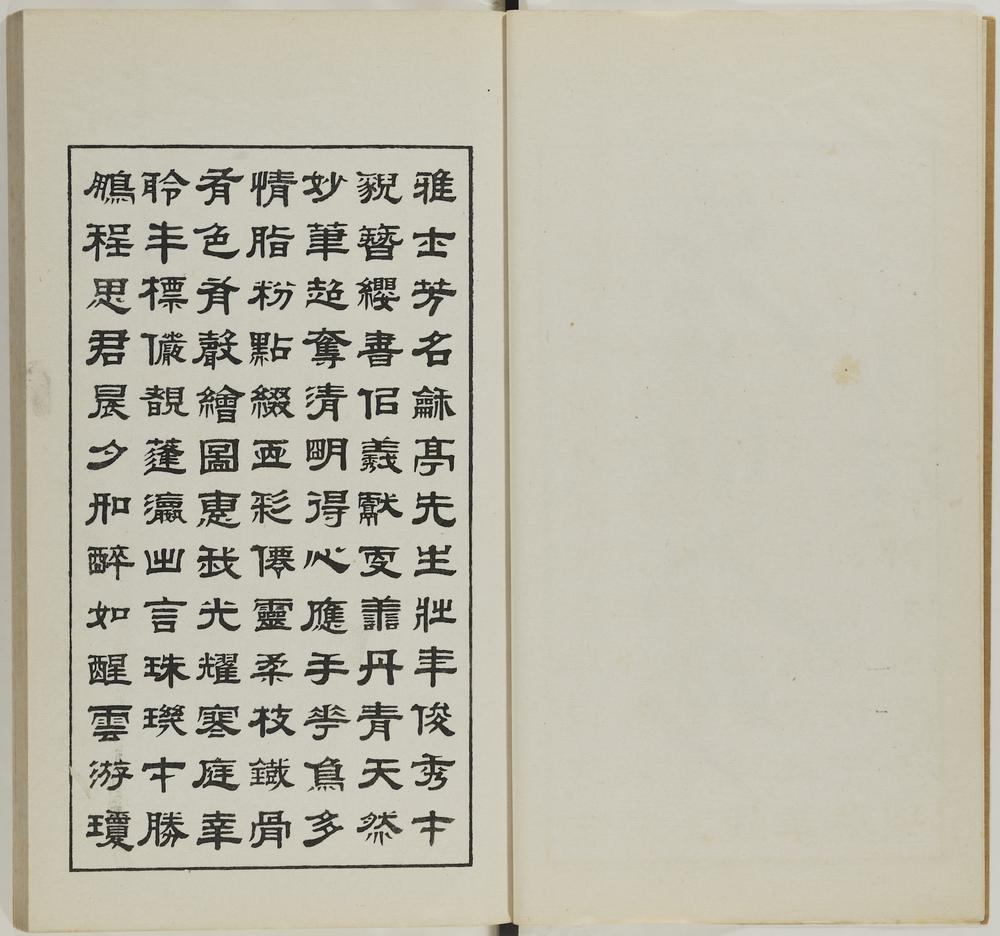 雅士芳名龢亭先生壯年俊秀才
貌簪纓書侶羲獻更譱丹青天然
妙筆超奪清明得心應手華鳥多
情脂粉點綴五彩僊靈柔枝鐵骨
有色有聲繪圖惠我光耀寒庭幸
聆丰標儼靚蓬瀛出言珠璣才勝
鵬程思君晨夕醉如醒雲游瓊